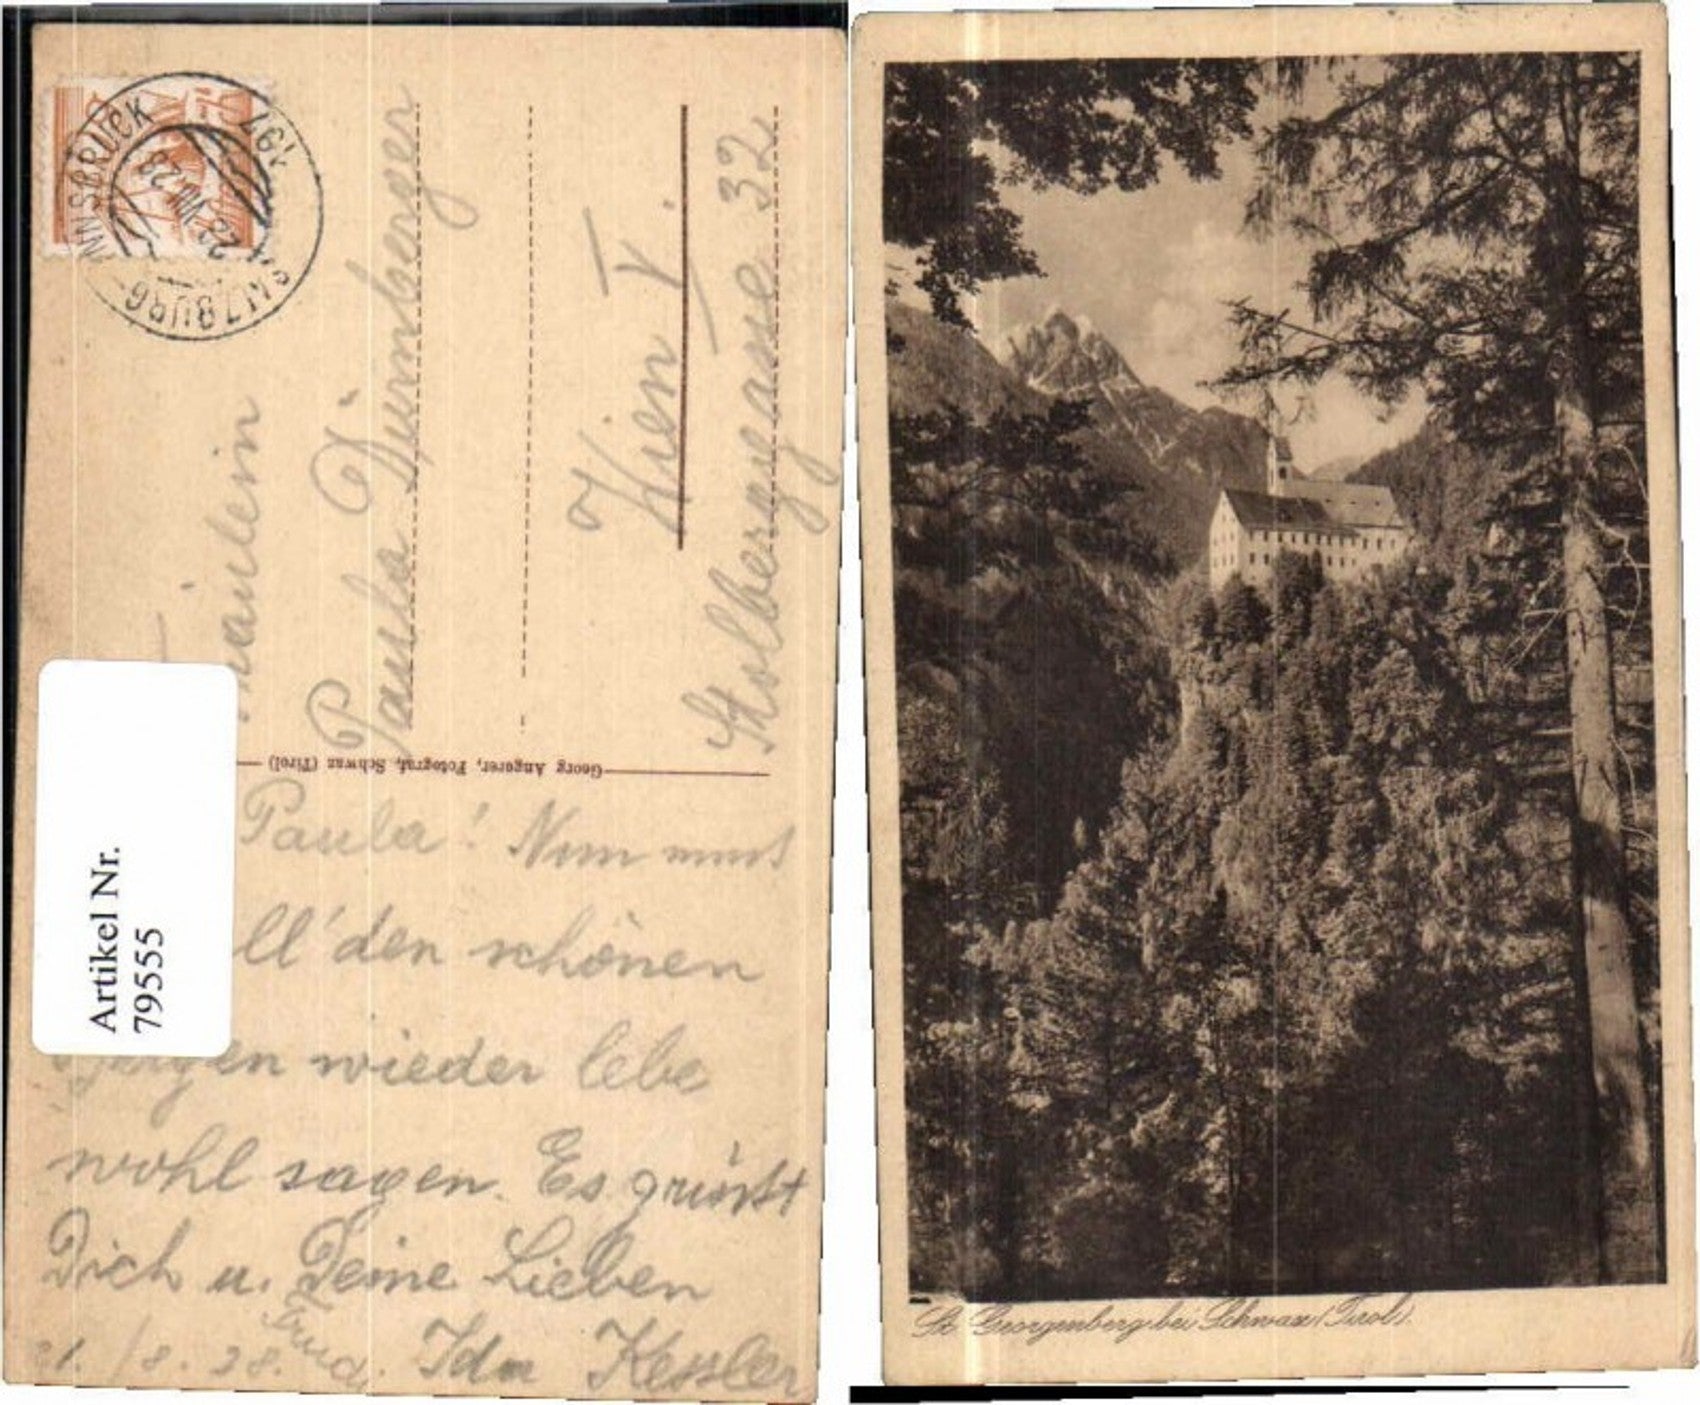 INNSBRUCK
197
SALZBURG
Fräulein
Paula Dürnberger
Wien V.
Stolberggasse 32
Georg Angerer, Fotograf, Schwaz (Tirol)
Artikel Nr.
795555
Paula! Nun muss
all' den schönen
wieder lebe
wohl sagen. Es grüsst
Dich u. Deine Lieben
Ida Kessler
St. Georgenberg bei Schwaz (Tirol).